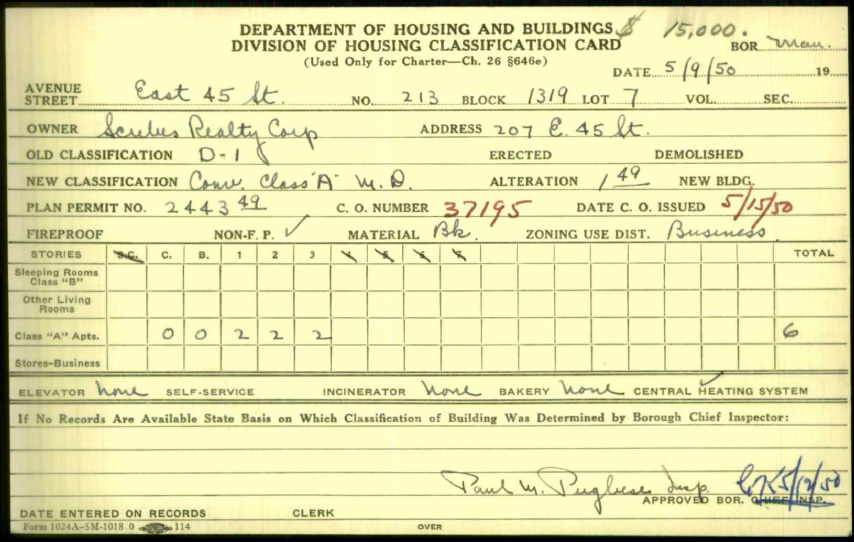 DEPARTMENT OF HOUSING AND BUILDINGS $ 15,000.
DIVISION OF HOUSING CLASSIFICATION CARD BOR Man.
(Used Only for Charter—Ch. 26 §646e)
DATE 5/9/50 19
AVENUE
STREET East 45 St. NO. 213 BLOCK 1319 LOT 7 VOL. SEC.
OWNER Realty Corp ADDRESS 207 E. 45 St.
OLD CLASSIFICATION D-1 ERECTED DEMOLISHED
NEW CLASSIFICATION Conv. Class "A" M.D. ALTERATION 1 49 NEW BLDG.
PLAN PERMIT NO. 2443 49 C. O. NUMBER 37195 DATE C. O. ISSUED 5/15/50
FIREPROOF NON-F. P. ✓ MATERIAL Bk. ZONING USE DIST. Business
STORIES S.C. C. B. 1 2 3 4 5 6 7 TOTAL
Sleeping Rooms
Class "B"
Other Living
Rooms
Class "A" Apts. 0 0 2 2 2 6
Stores-Business
ELEVATOR None SELF-SERVICE INCINERATOR None BAKERY None CENTRAL HEATING SYSTEM ✓
If No Records Are Available State Basis on Which Classification of Building Was Determined by Borough Chief Inspector:
Paul M. Pugliese Insp. 5/12/50
APPROVED BOR. CHIEF INSP.
DATE ENTERED ON RECORDS CLERK
Form 1024A-5M-1018.0 114 OVER